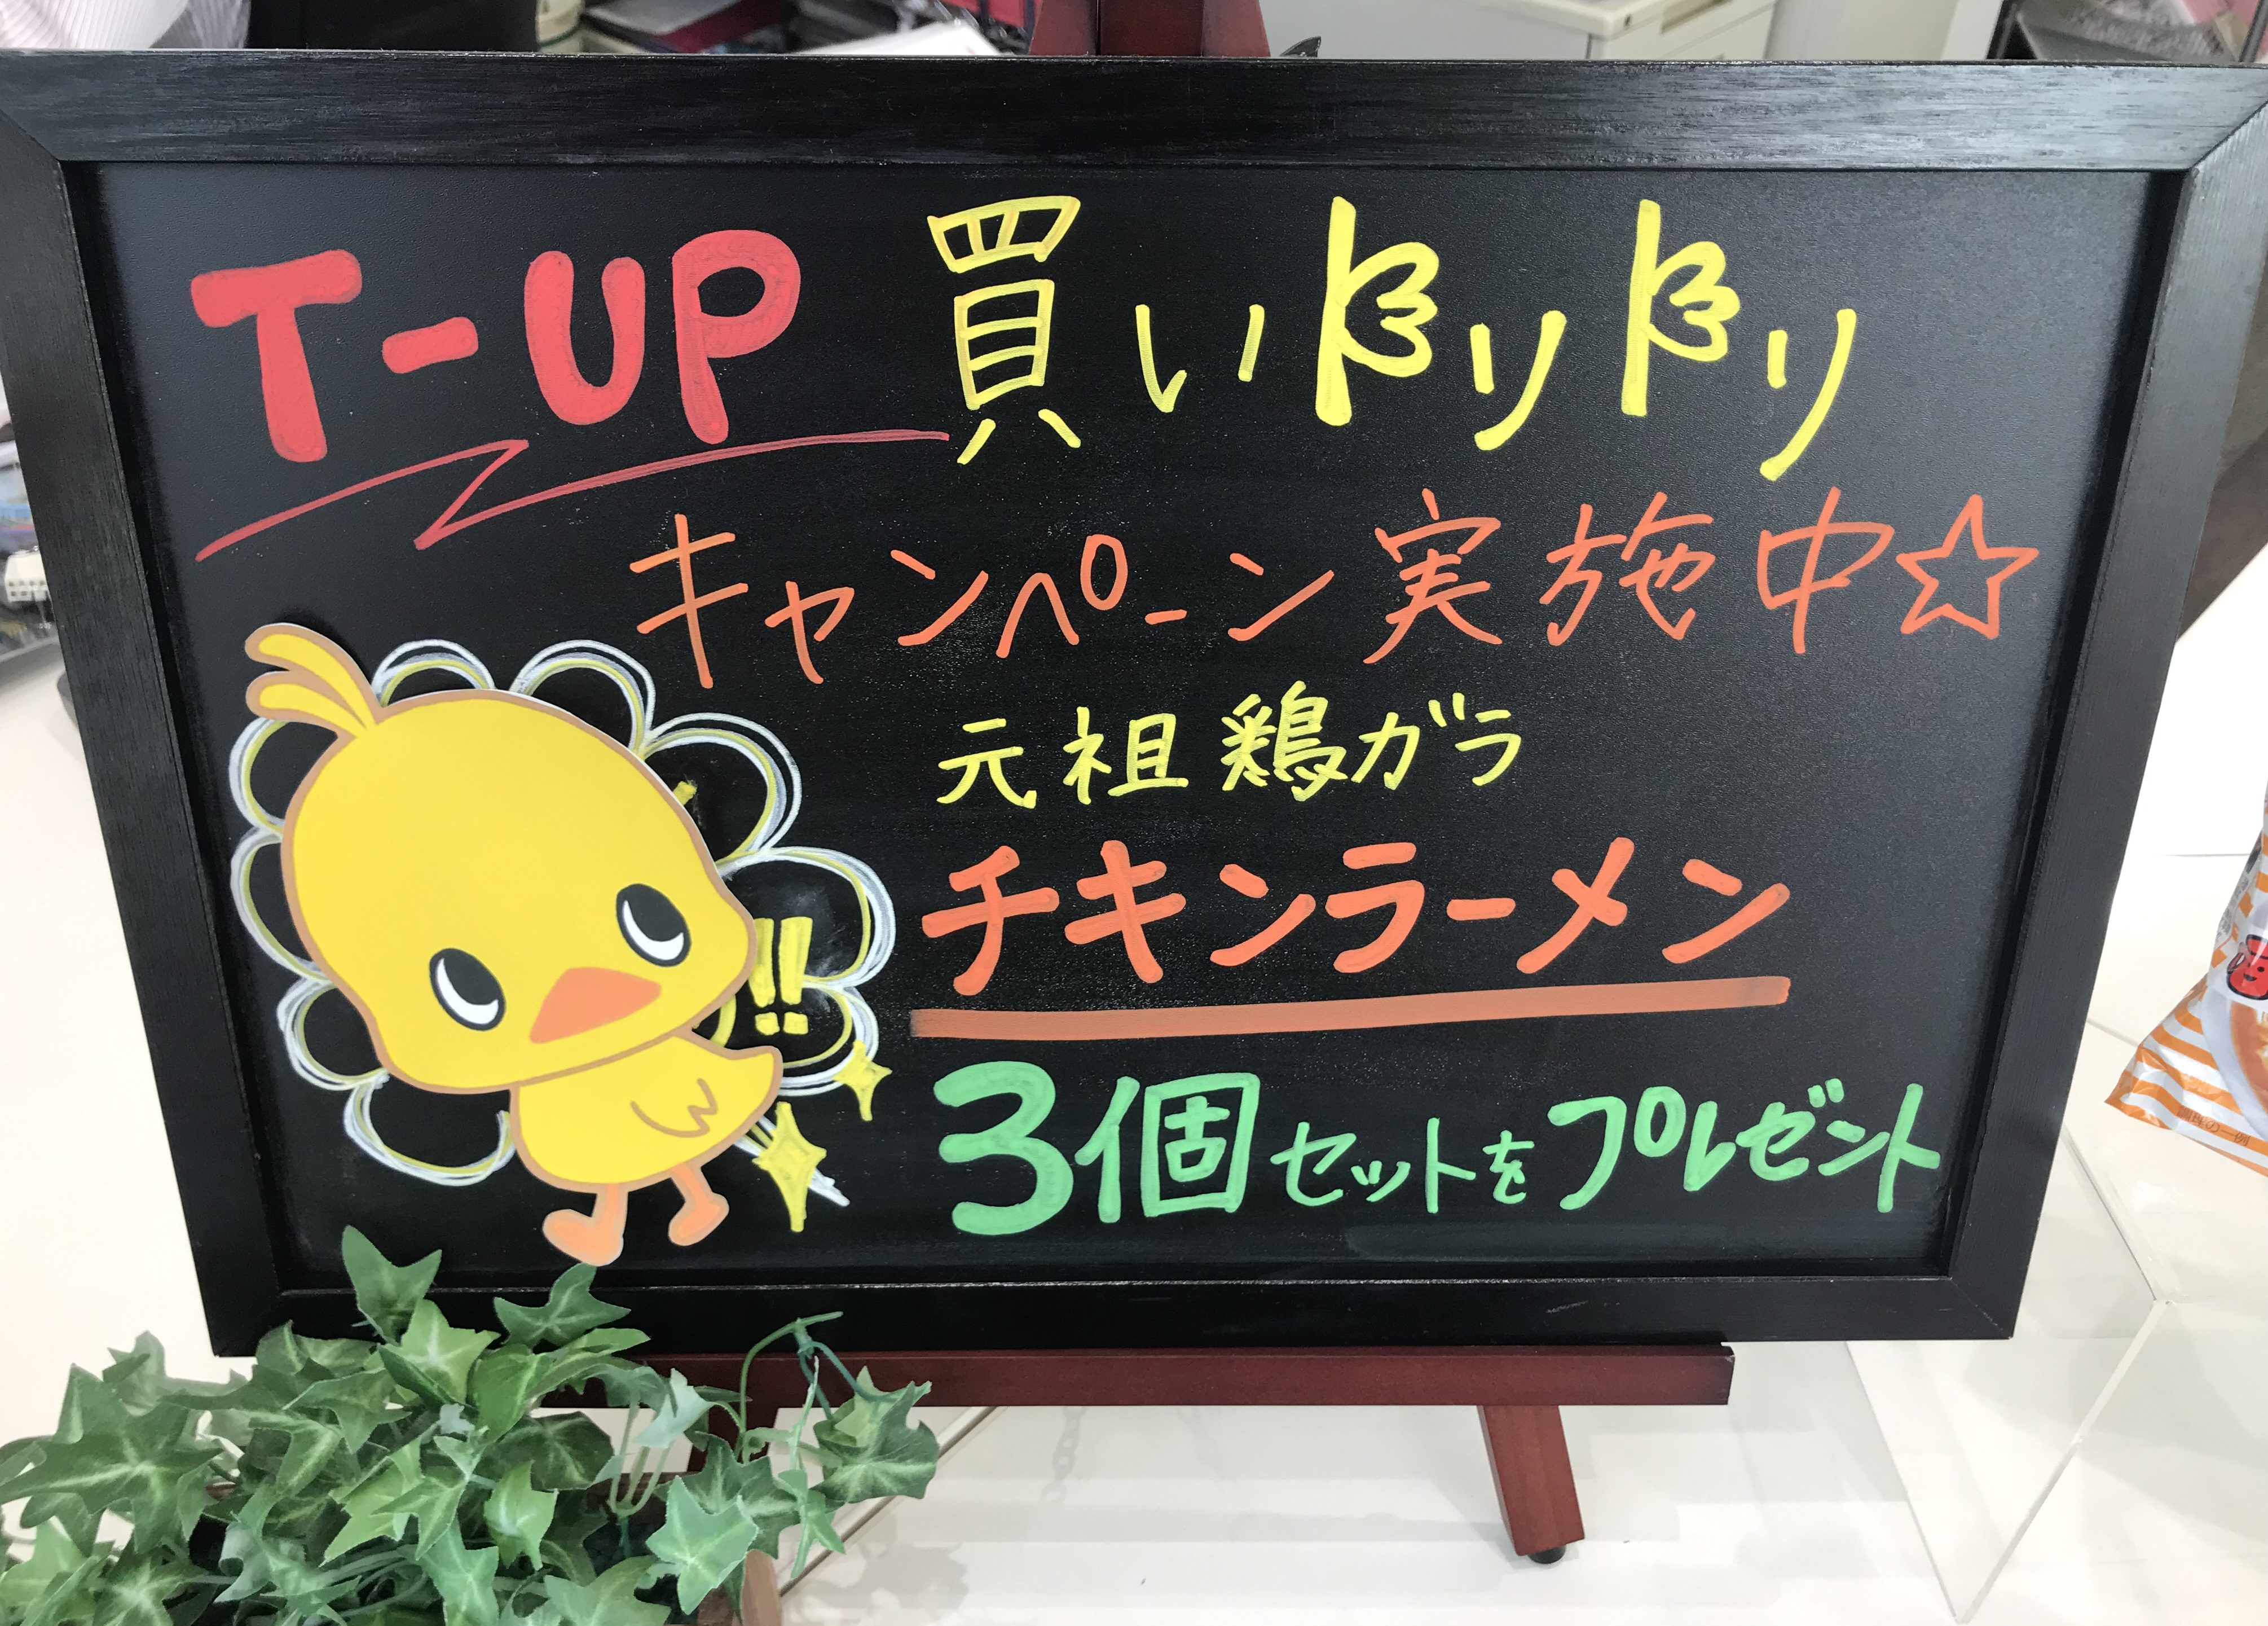 T-UP 買いトリトリ
キャンペーン実施中☆
元祖鶏ガラ
チキンラーメン
!!
3個セットをプレゼント